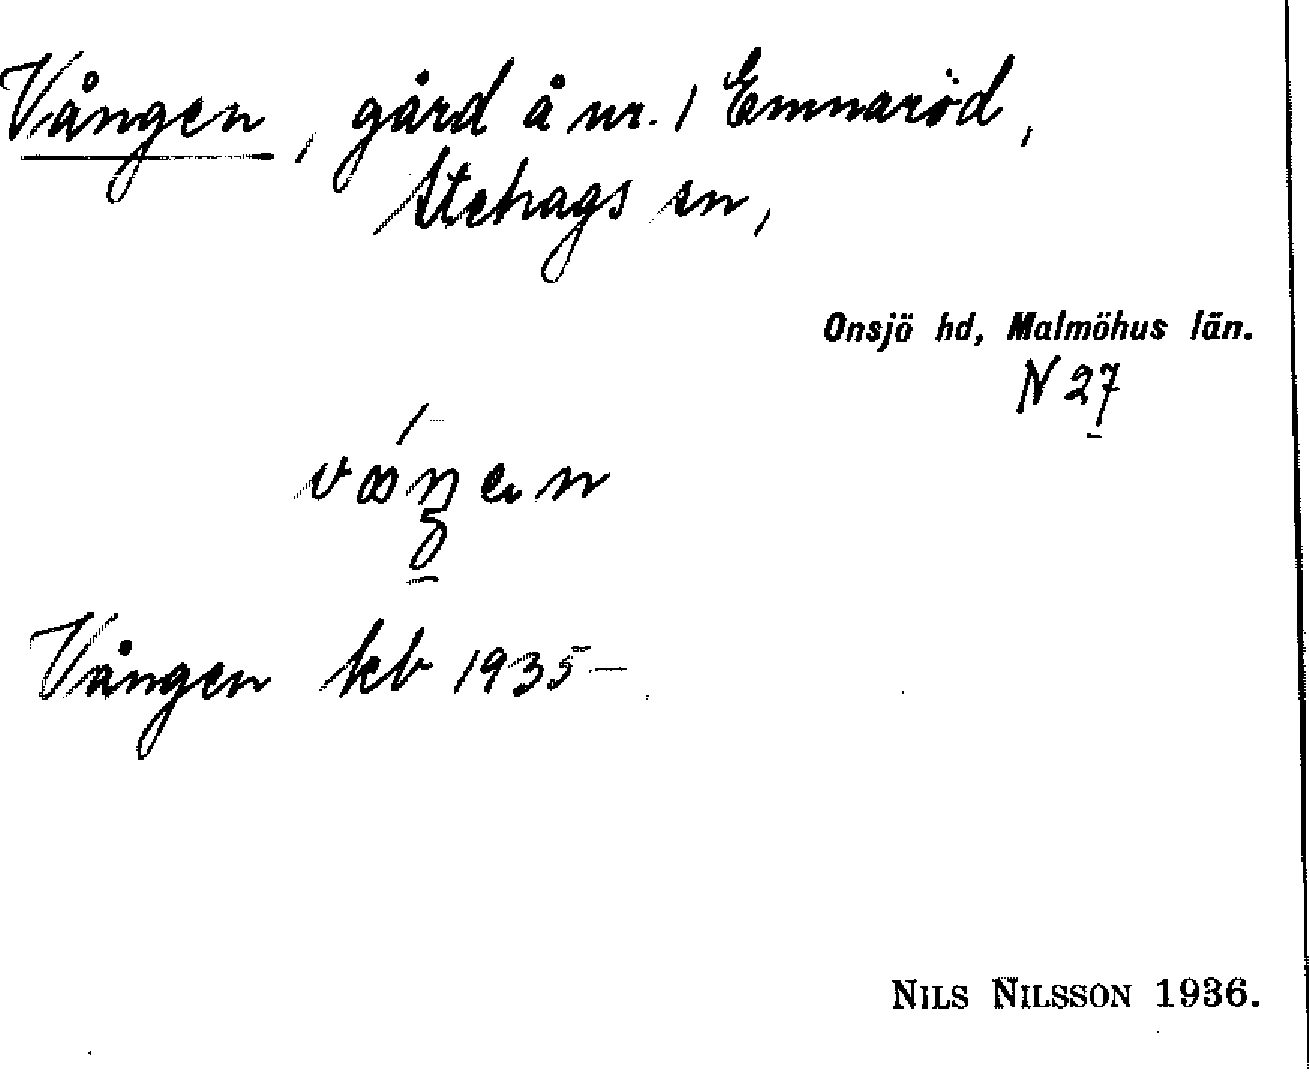 Vången, gård å nr. 1 Emnaröd,
Stehags sn,
Onsjö hd, Malmöhus län.
N 27
Vången kb 1935-
NILS NILSSON 1936.